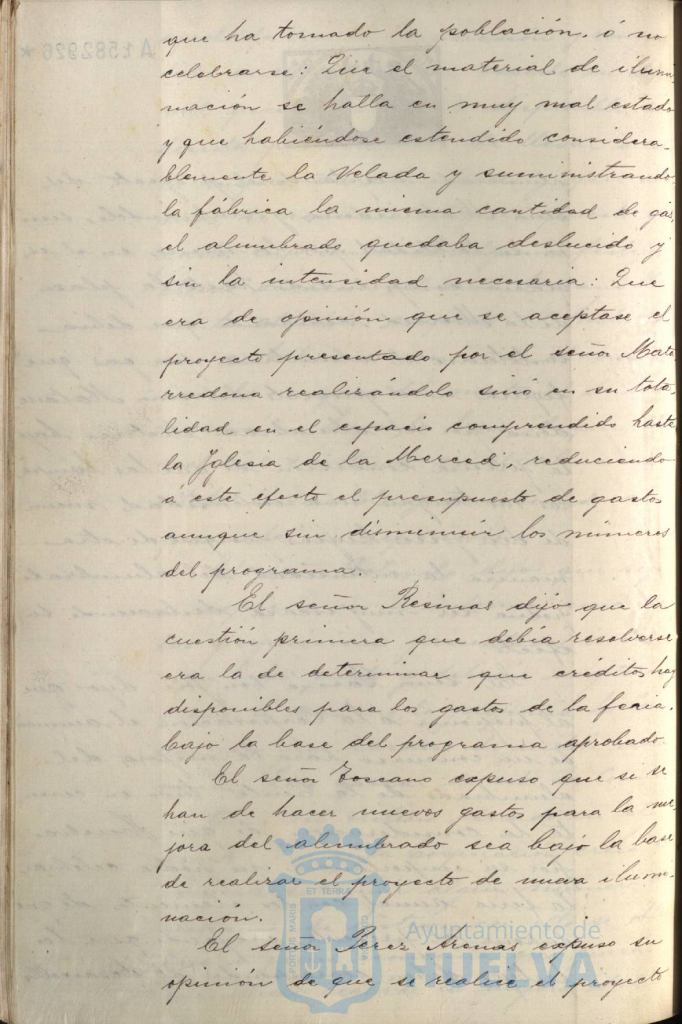 que ha tomado la población, ó no
celebrarse: Que el material de ilumi
nación se halla en muy mal estado
y que habiéndose estendido considera-
blemente la Velada y suministrando
la fábrica la misma cantidad de gas,
el alumbrado quedaba deslucido y
sin la intensidad necesaria: Que
era de opinión que se aceptase el
proyecto presentado por el señor Mata
rredona realizándolo sinó en su tota-
lidad en el espacio comprendido hasta
la Yglesia de la Merced, reduciendo
á este efecto el presupuesto de gastos
aunque sin disminuir los números
del programa.
El señor Resinas dijo que la
cuestión primera que debía resolverse
era la de determinar que créditos hay
disponibles para los gastos de la feria,
bajo la base del programa aprobado.
El señor Toscano expuso que si se
han de hacer nuevos gastos para la me-
jora del alumbrado sea bajo la base
de realizar el proyecto de nueva ilumi-
nación.
El señor Perez Arenas expuso su
opinión de que se realice el proyecto
A1582926 *
PORTUS MARIS ET TERRAE CUSTODIA
Ayuntamiento de
HUELVA